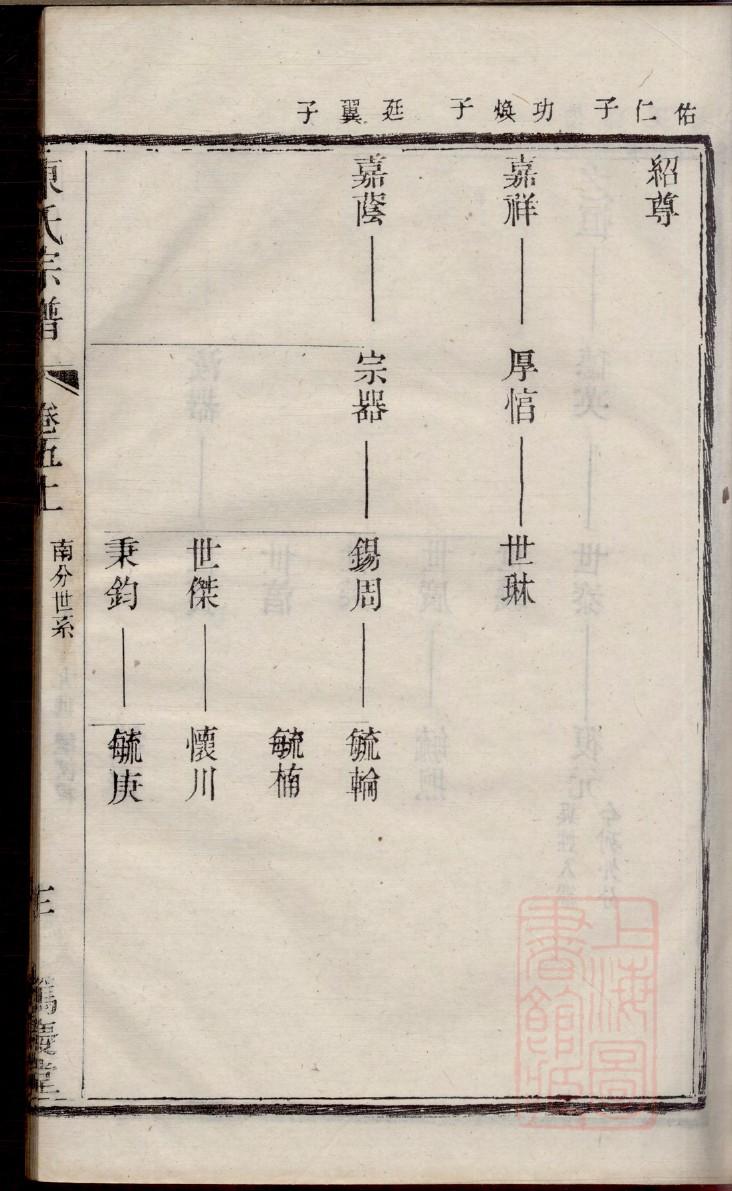 佑仁子
功煥子
廷翼子
紹尊
嘉祥
厚悺
世琳
嘉蔭
宗器
錫周
毓輪
毓楠
世傑
懷川
秉鈞
毓庚
氏宗譜
卷五上
南分世系
上海圖書館藏